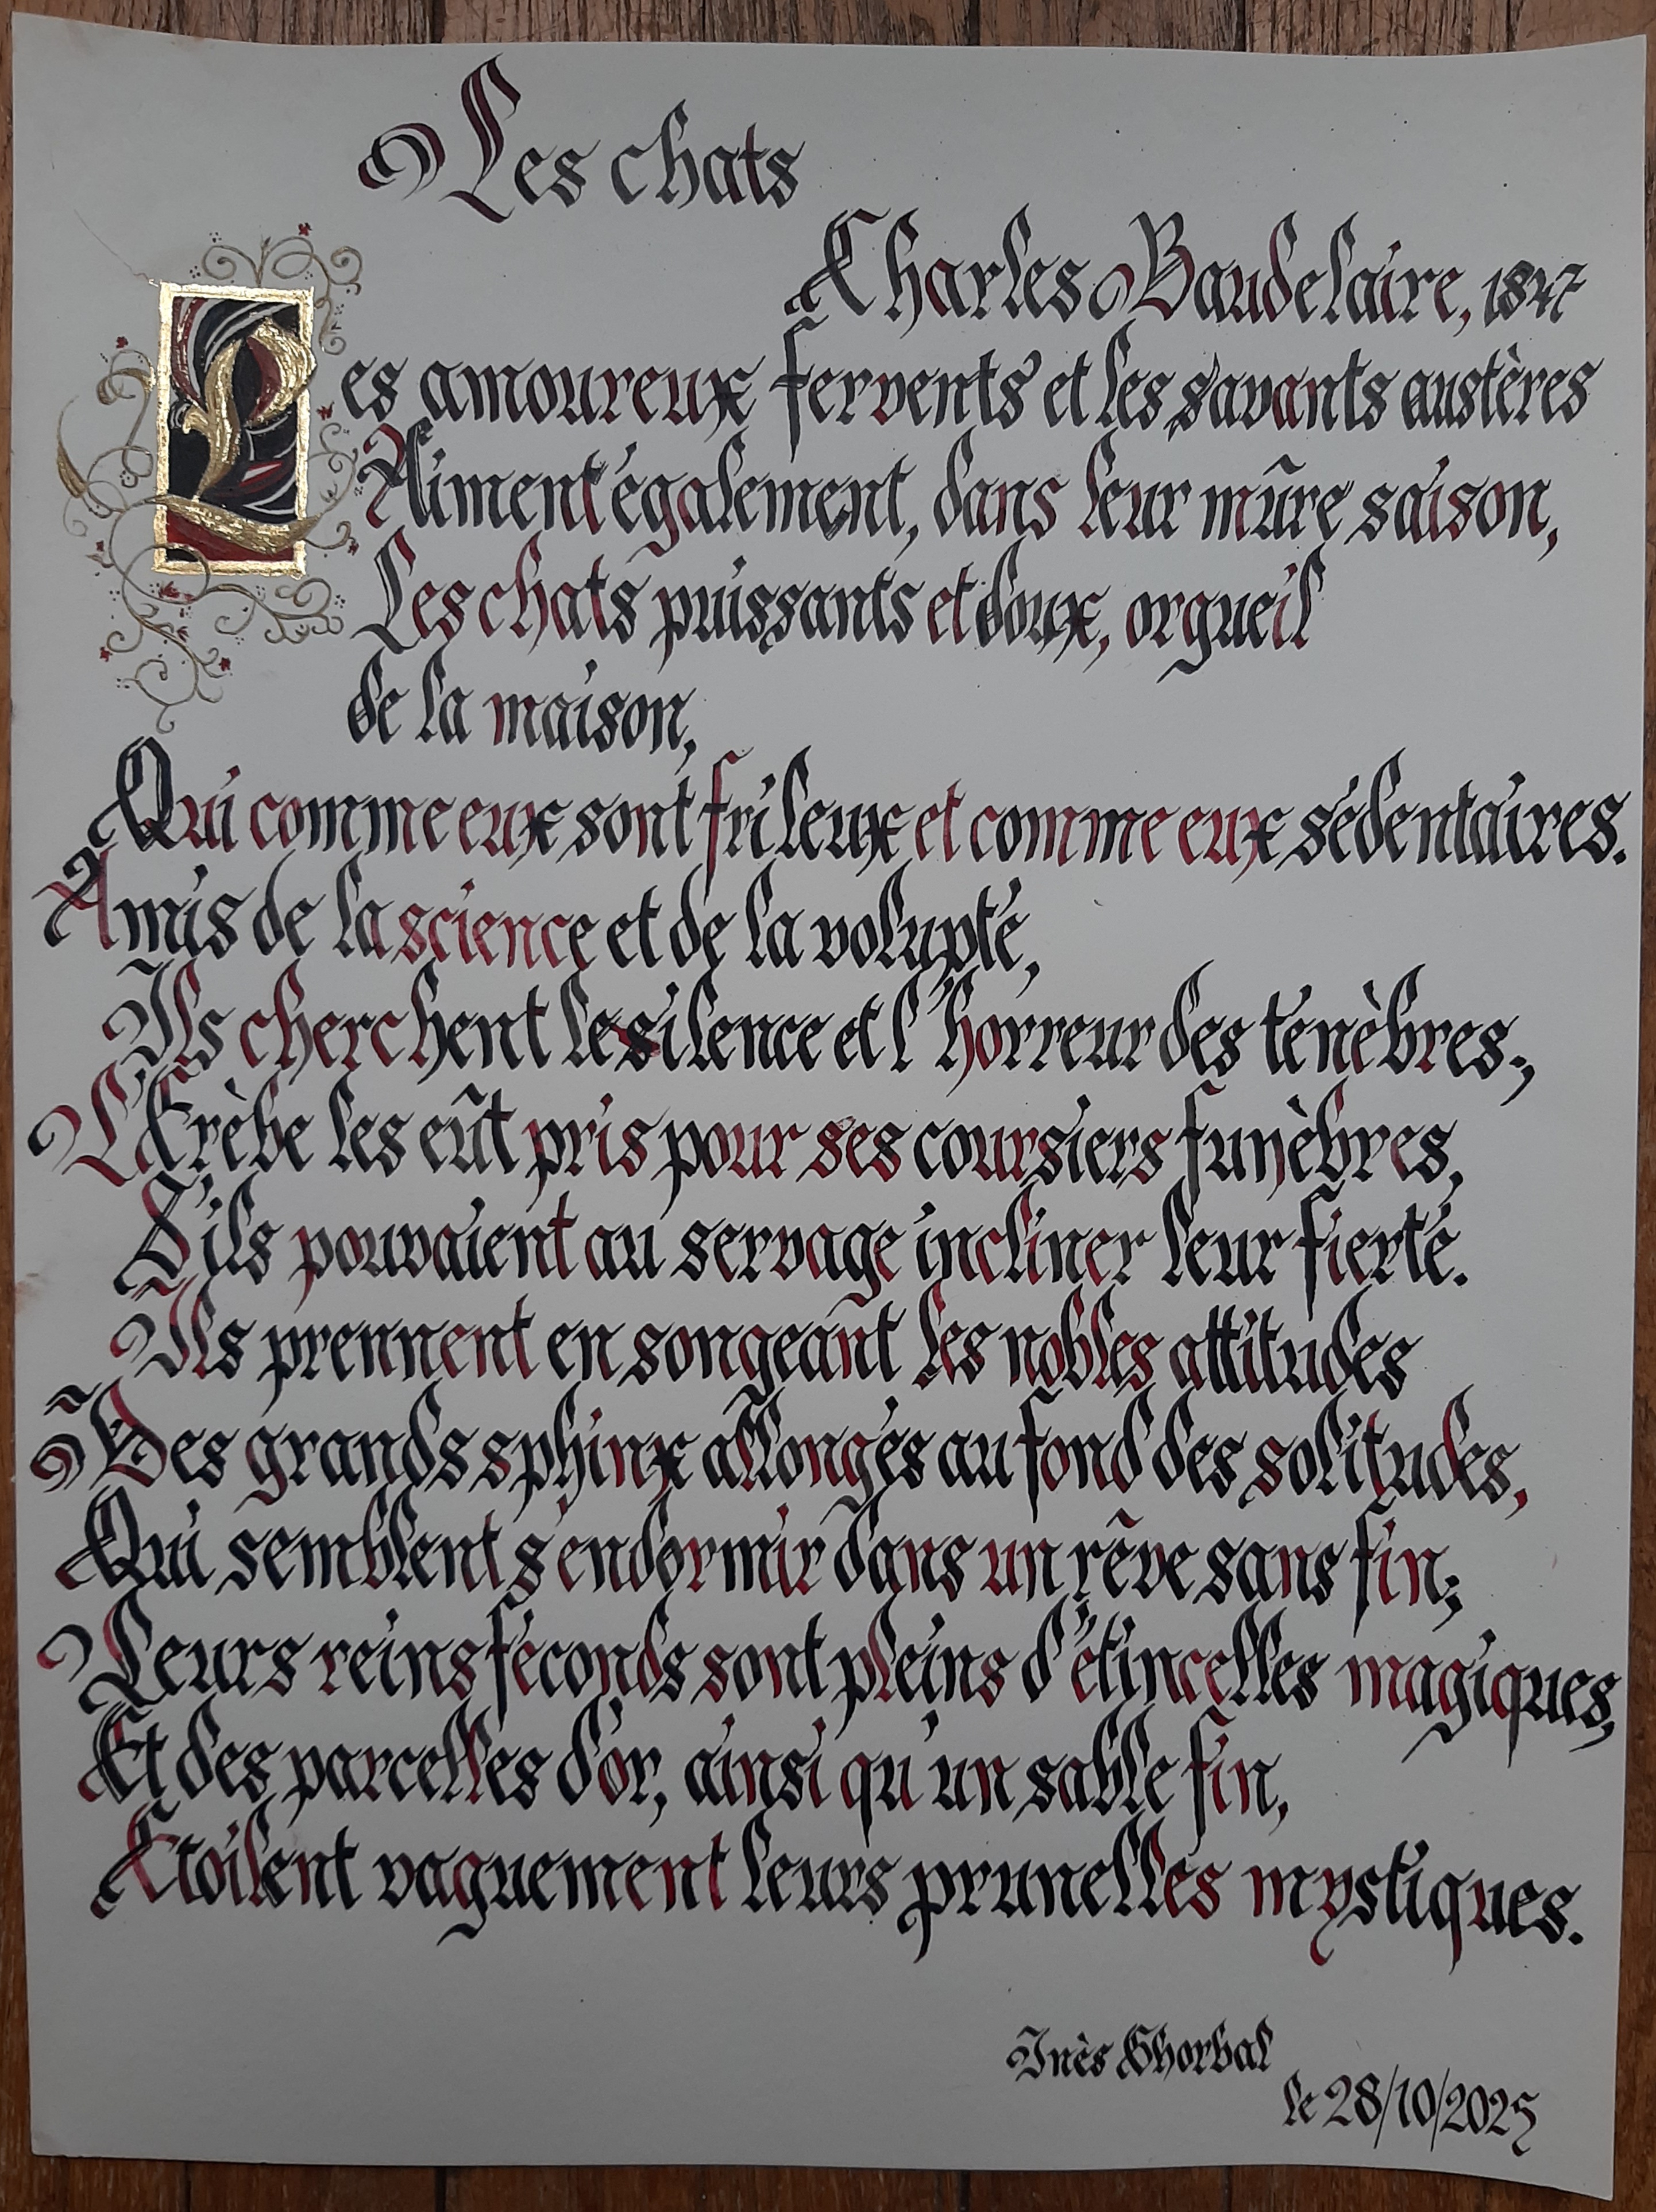 Les chats
Charles Baudelaire, 1847
Les amoureux fervents et les savants austères
Aiment également, dans leur mûre saison,
Les chats puissants et doux, orgueil
de la maison,
Qui comme eux sont frileux et comme eux sédentaires.
Amis de la science et de la volupté,
Ils cherchent le silence et l'horreur des ténèbres;
L'Erèbe les eût pris pour ses coursiers funèbres,
S'ils pouvaient au servage incliner leur fierté.
Ils prennent en songeant les nobles attitudes
Des grands sphinx allongés au fond des solitudes,
Qui semblent s'endormir dans un rêve sans fin;
Leurs reins féconds sont pleins d'étincelles magiques,
Et des parcelles d'or, ainsi qu'un sable fin,
Etoilent vaguement leurs prunelles mystiques.
Inès Ghorbal
le 28/10/2025